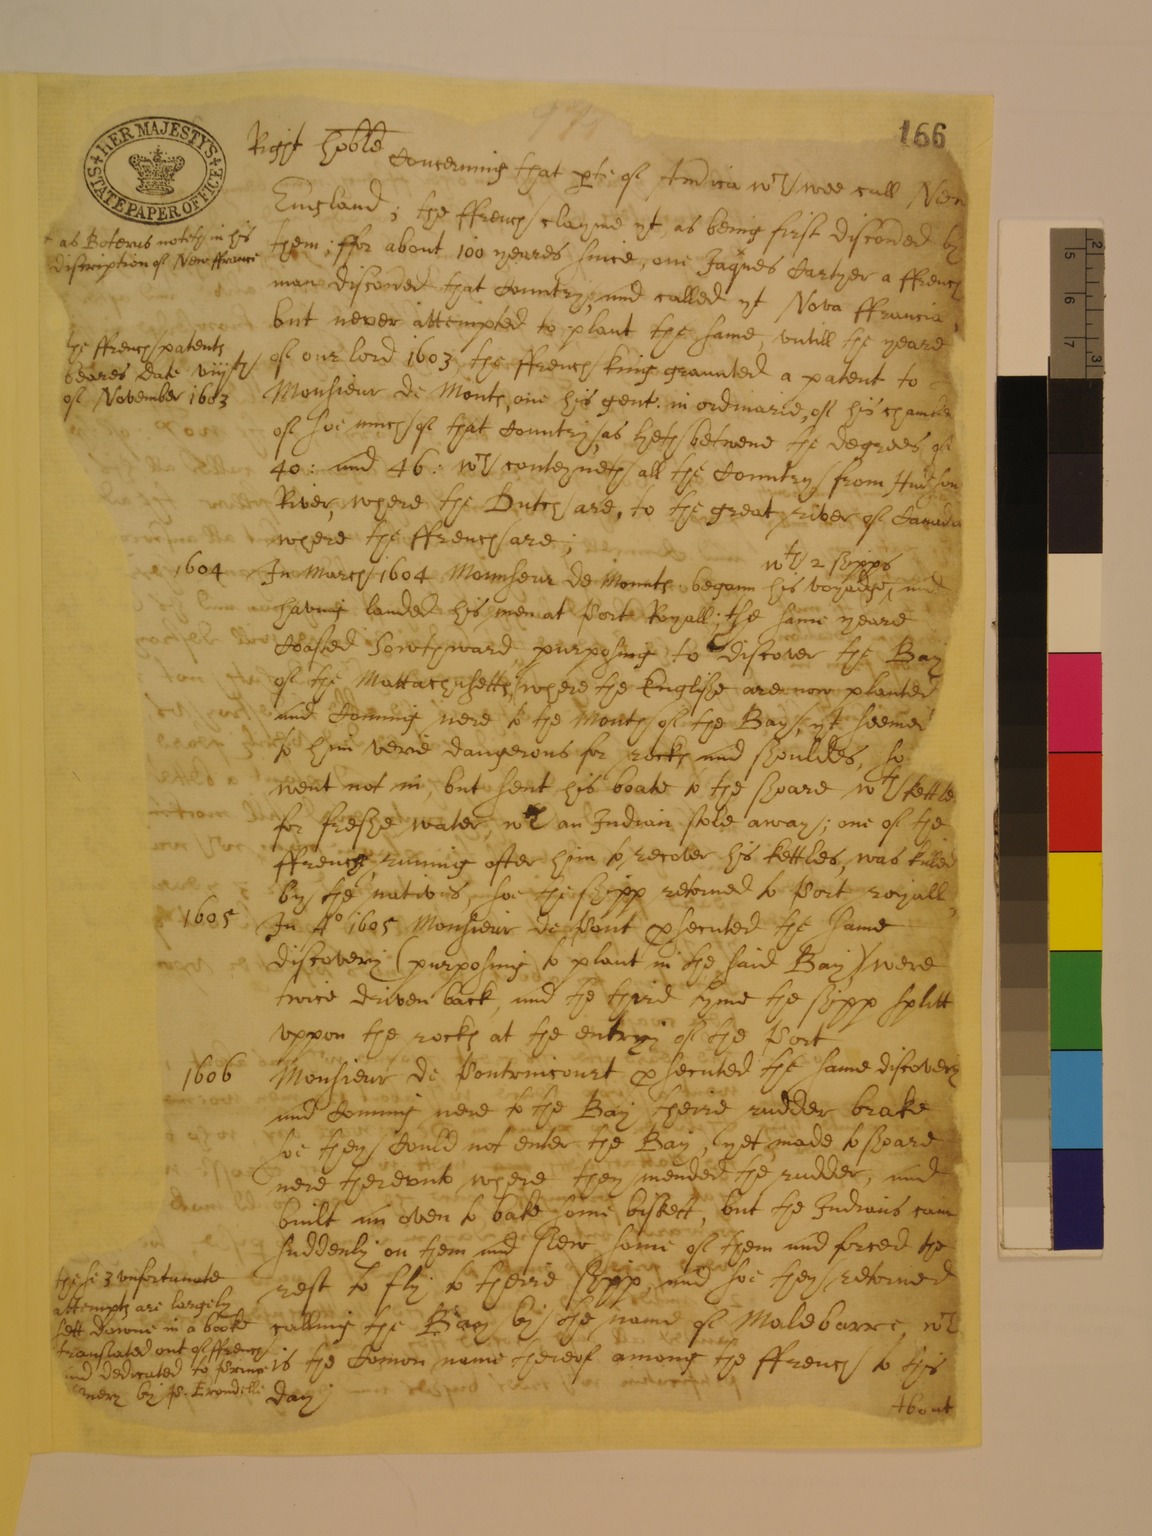 166
HER MAJESTY'S
STATE PAPER OFFICE
Right Hoble
Concerning that pte of America wch wee call New
England; the ffrench clayme yt, as being first discoued by
them; ffor about 100 yeares since, one Jaques Cartyer a ffrench
man discoued that Country, and called yt Nova ffrancia,
but never attempted to plant the same, vntill the yeare
of our lord 1603 the ffrench king graunted a patent to
Monsieur de Monts, one his gent: in ordinarie, of his chamber
of soe much of that Country, as lyeth betwene the degrees of
40: and 46: wch conteyneth all the Country from Hudson
River, where the Dutch are, to the great river of Canada
where the ffrench are;
* as Boterus noteth in his
discription of New ffrance
the ffrench patents
beares date viijth
of November 1603
1604
In March 1604 Mounsieur de Monts begann his voyadge, and
wth 2 shipps
having landed his men at Port Royall; the same yeare
Coasted Sowthward purposing to discover the Bay
of the Mattachusetts, where the Englishe are now planted
and Coming nere to the Mouth of the Bay, yt seemed
to him verie dangerous for rocks and shouldes, so
went not in, but sent his boate to the shoare wth kettles
for freshe water, wch an Indian stole away; one of the
ffrench runing after him to recover his kettles, was killed
by the natives, soe the shipp retorned to Port royall,
1605
In Ao 1605 Monsieur de Pont psecuted the same
discovery (purposing to plant in the said Bay) were
twice driven back, and the third tyme the shipp splitt
vppon the rocks at the entry of the Port
1606
Monsieur de Pontrincourt psecuted the same discovery
and Coming nere to the Bay theire rudder brake
soe they Could not enter the Bay, yet made to shoare
nere therevnto where they mended the rudder, and
built an oven to bake some biskett, but the Indians cam
suddenly on them and slew some of them and forced the
rest to fly to theire shipp, and soe they retorned
calling the Bay by the name of Malebarre, wch
is the Comon name thereof among the ffrench to this
day;
these 3 vnfortunate
attempts are largely
sett downe in a booke
translated out of ffrench
and dedicated to Prince
Henry by P. Erondelle
About